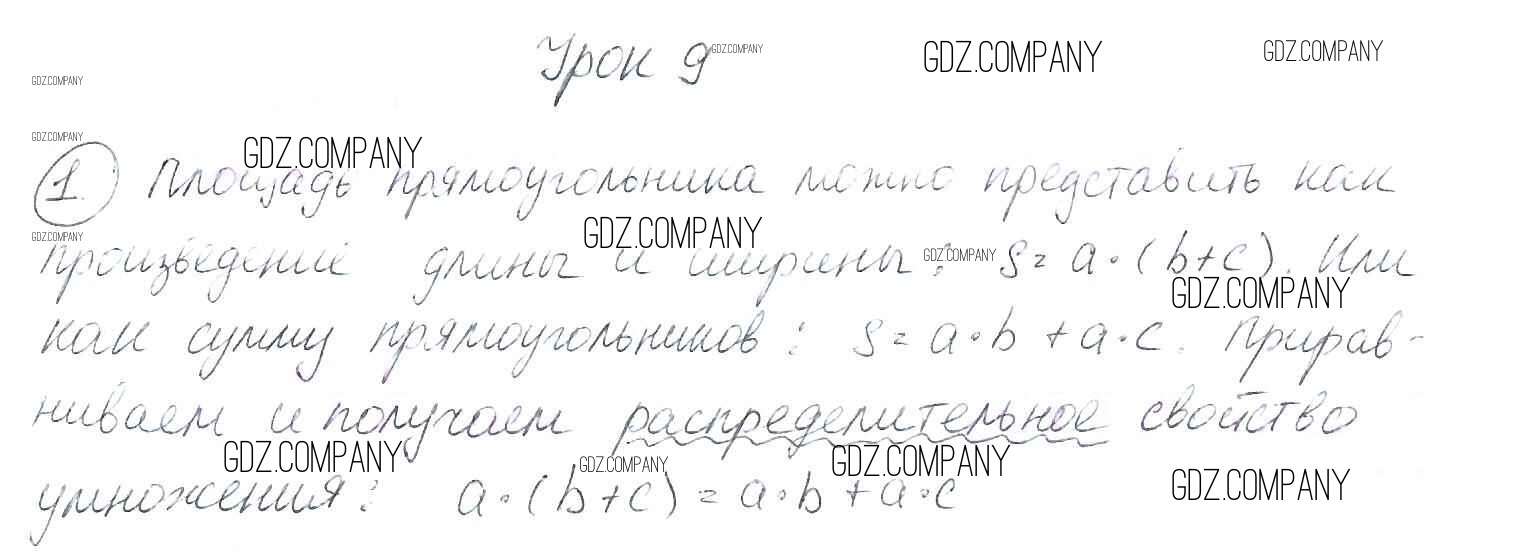 Урок 9
GDZ.COMPANY
GDZ.COMPANY
GDZ.COMPANY
GDZ.COMPANY
GDZ.COMPANY
GDZ.COMPANY
1 Площадь прямоугольника можно представить как
GDZ.COMPANY
GDZ.COMPANY
произведение длины и ширины: S = a·(b+c). Или
GDZ.COMPANY
GDZ.COMPANY
как сумму прямоугольников: S = a·b + a·c. Прирав-
ниваем и получаем распределительное свойство
GDZ.COMPANY
GDZ.COMPANY
GDZ.COMPANY
GDZ.COMPANY
умножения: a·(b+c) = a·b + a·c